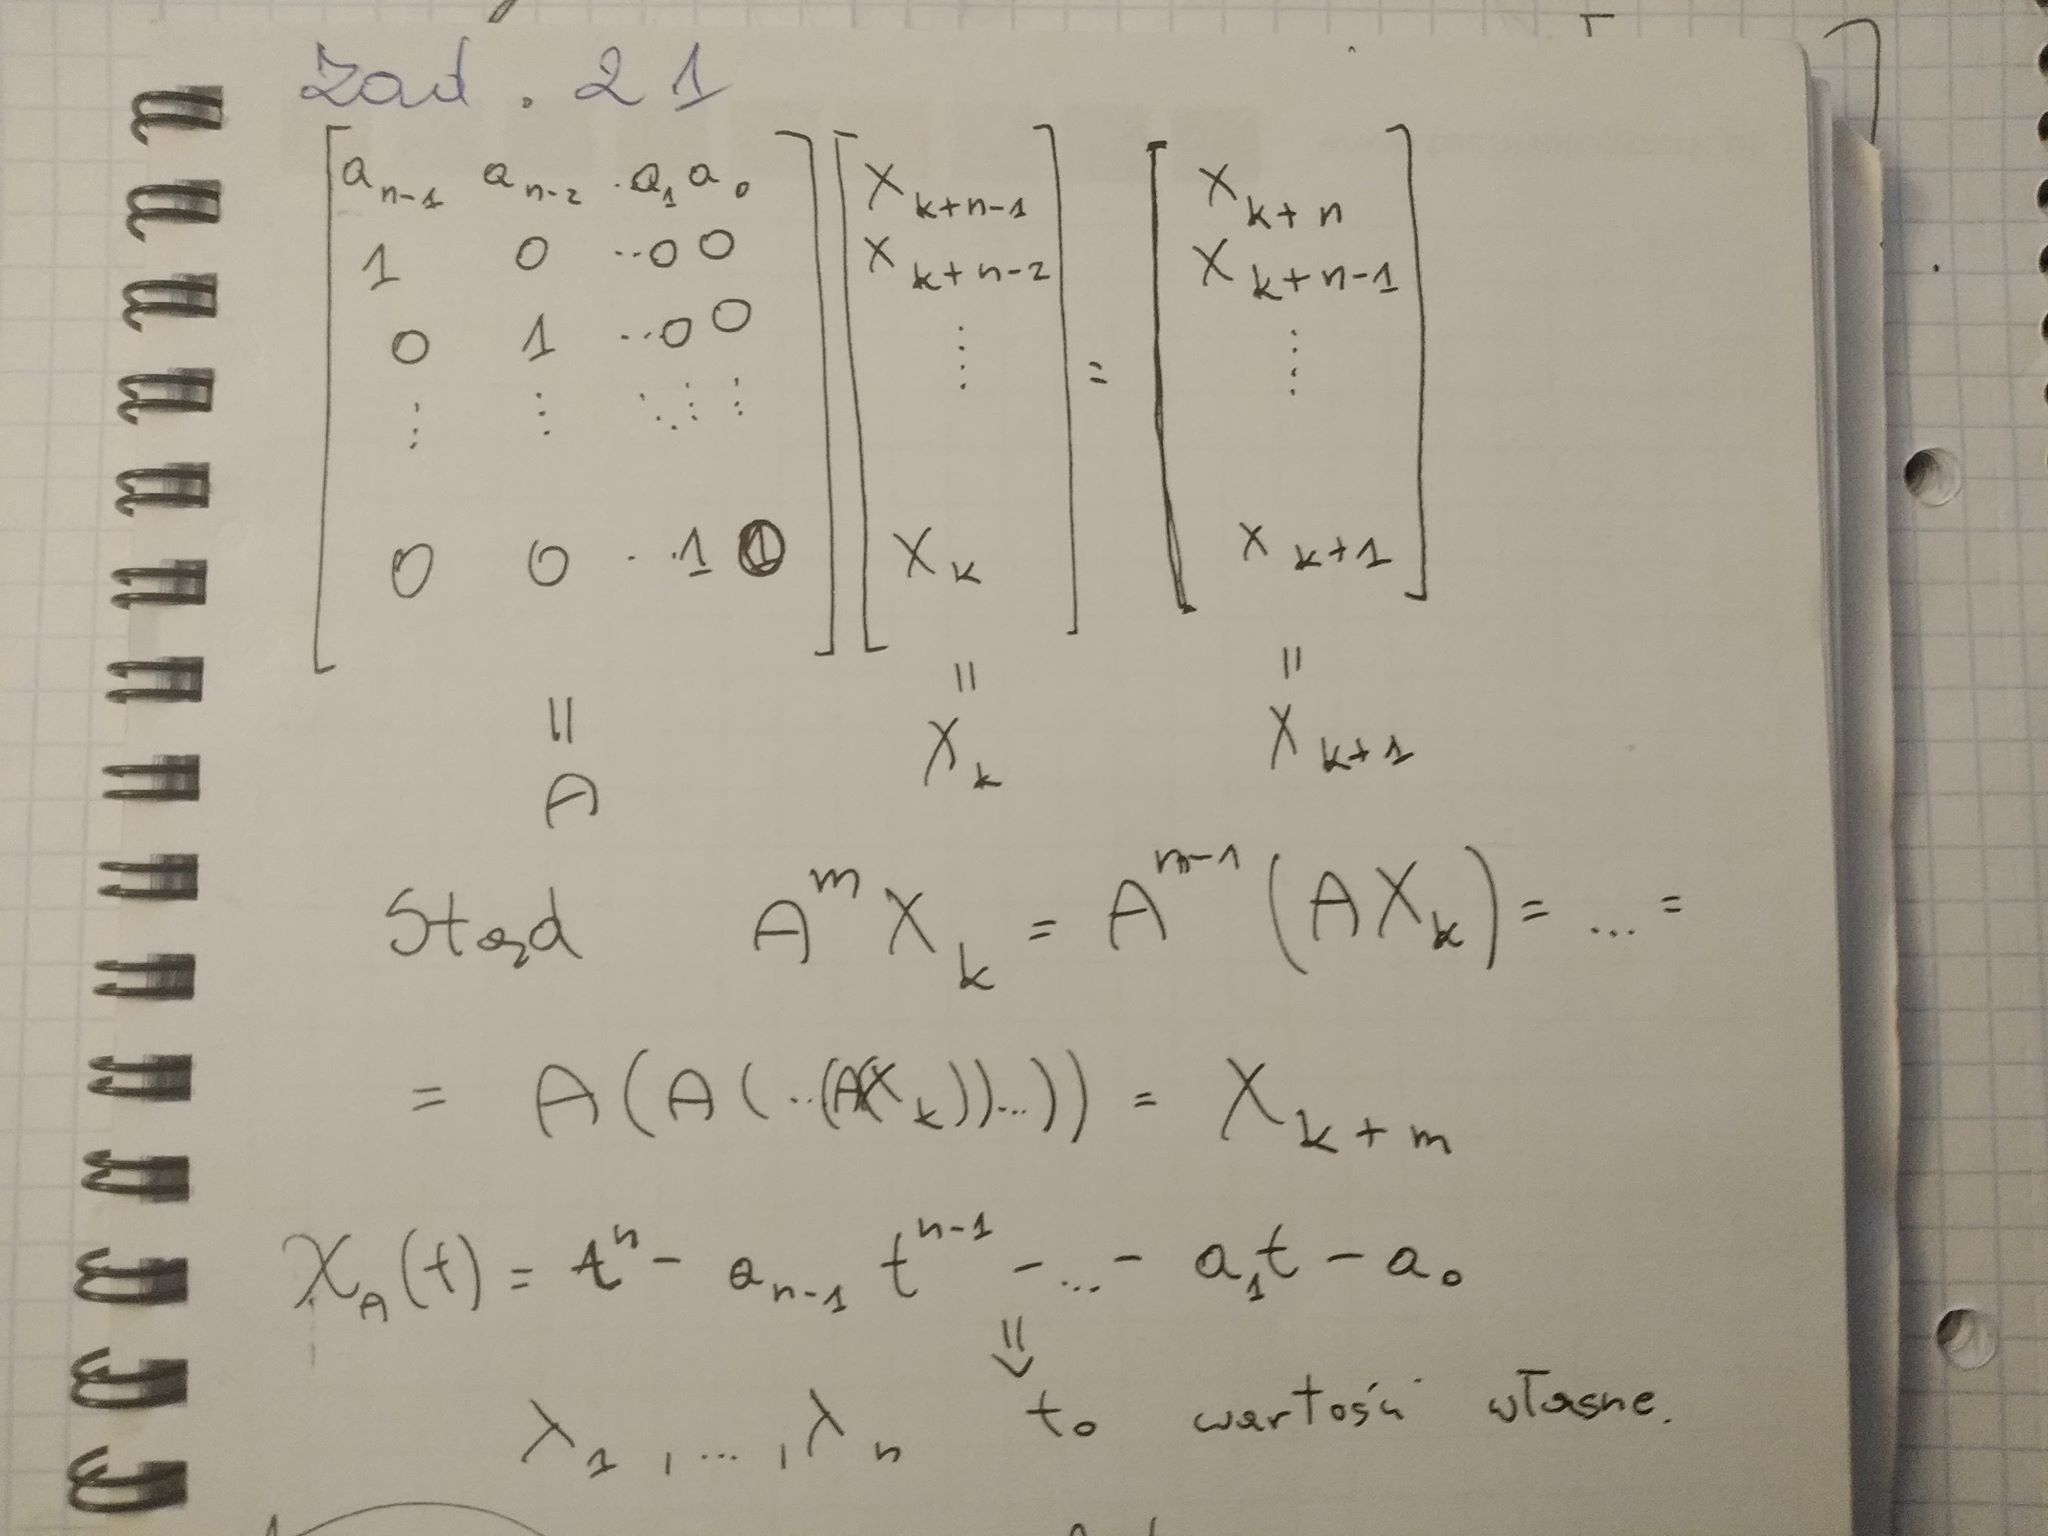 Zad. 21
[a_{n-1} a_{n-2} . a_1 a_0] [x_{k+n-1}] [x_{k+n}]
1 0 ...0 0 x_{k+n-2} x_{k+n-1}
0 1 ...0 0 ⋮ = ⋮
⋮ ⋮ ⋱ ⋮ ⋮
0 0 ...1 0 x_k x_{k+1}
= = =
A X_k X_{k+1}
Stąd A^m X_k = A^{m-1} (A X_k) = ... =
= A(A(...(A(X_k))...)) = X_{k+m}
χ_A(t) = t^n - a_{n-1} t^{n-1} - ... - a_1 t - a_0
⇓
λ_1, ..., λ_n to wartości własne.